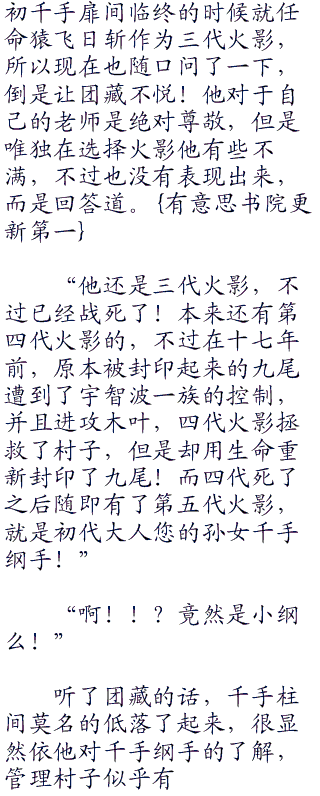 初千手扉间临终的时候就任
命猿飞日斩作为三代火影，
所以现在也随口问了一下，
倒是让团藏不悦！他对于自
己的老师是绝对尊敬，但是
唯独在选择火影他有些不
满，不过也没有表现出来，
而是回答道。{有意思书院更
新第一}
“他还是三代火影，不
过已经战死了！本来还有第
四代火影的，不过在十七年
前，原本被封印起来的九尾
遭到了宇智波一族的控制，
并且进攻木叶，四代火影拯
救了村子，但是却用生命重
新封印了九尾！而四代死了
之后随即有了第五代火影，
就是初代大人您的孙女千手
纲手！”
“啊！！？竟然是小纲
么！”
听了团藏的话，千手柱
间莫名的低落了起来，很显
然依他对千手纲手的了解，
管理村子似乎有